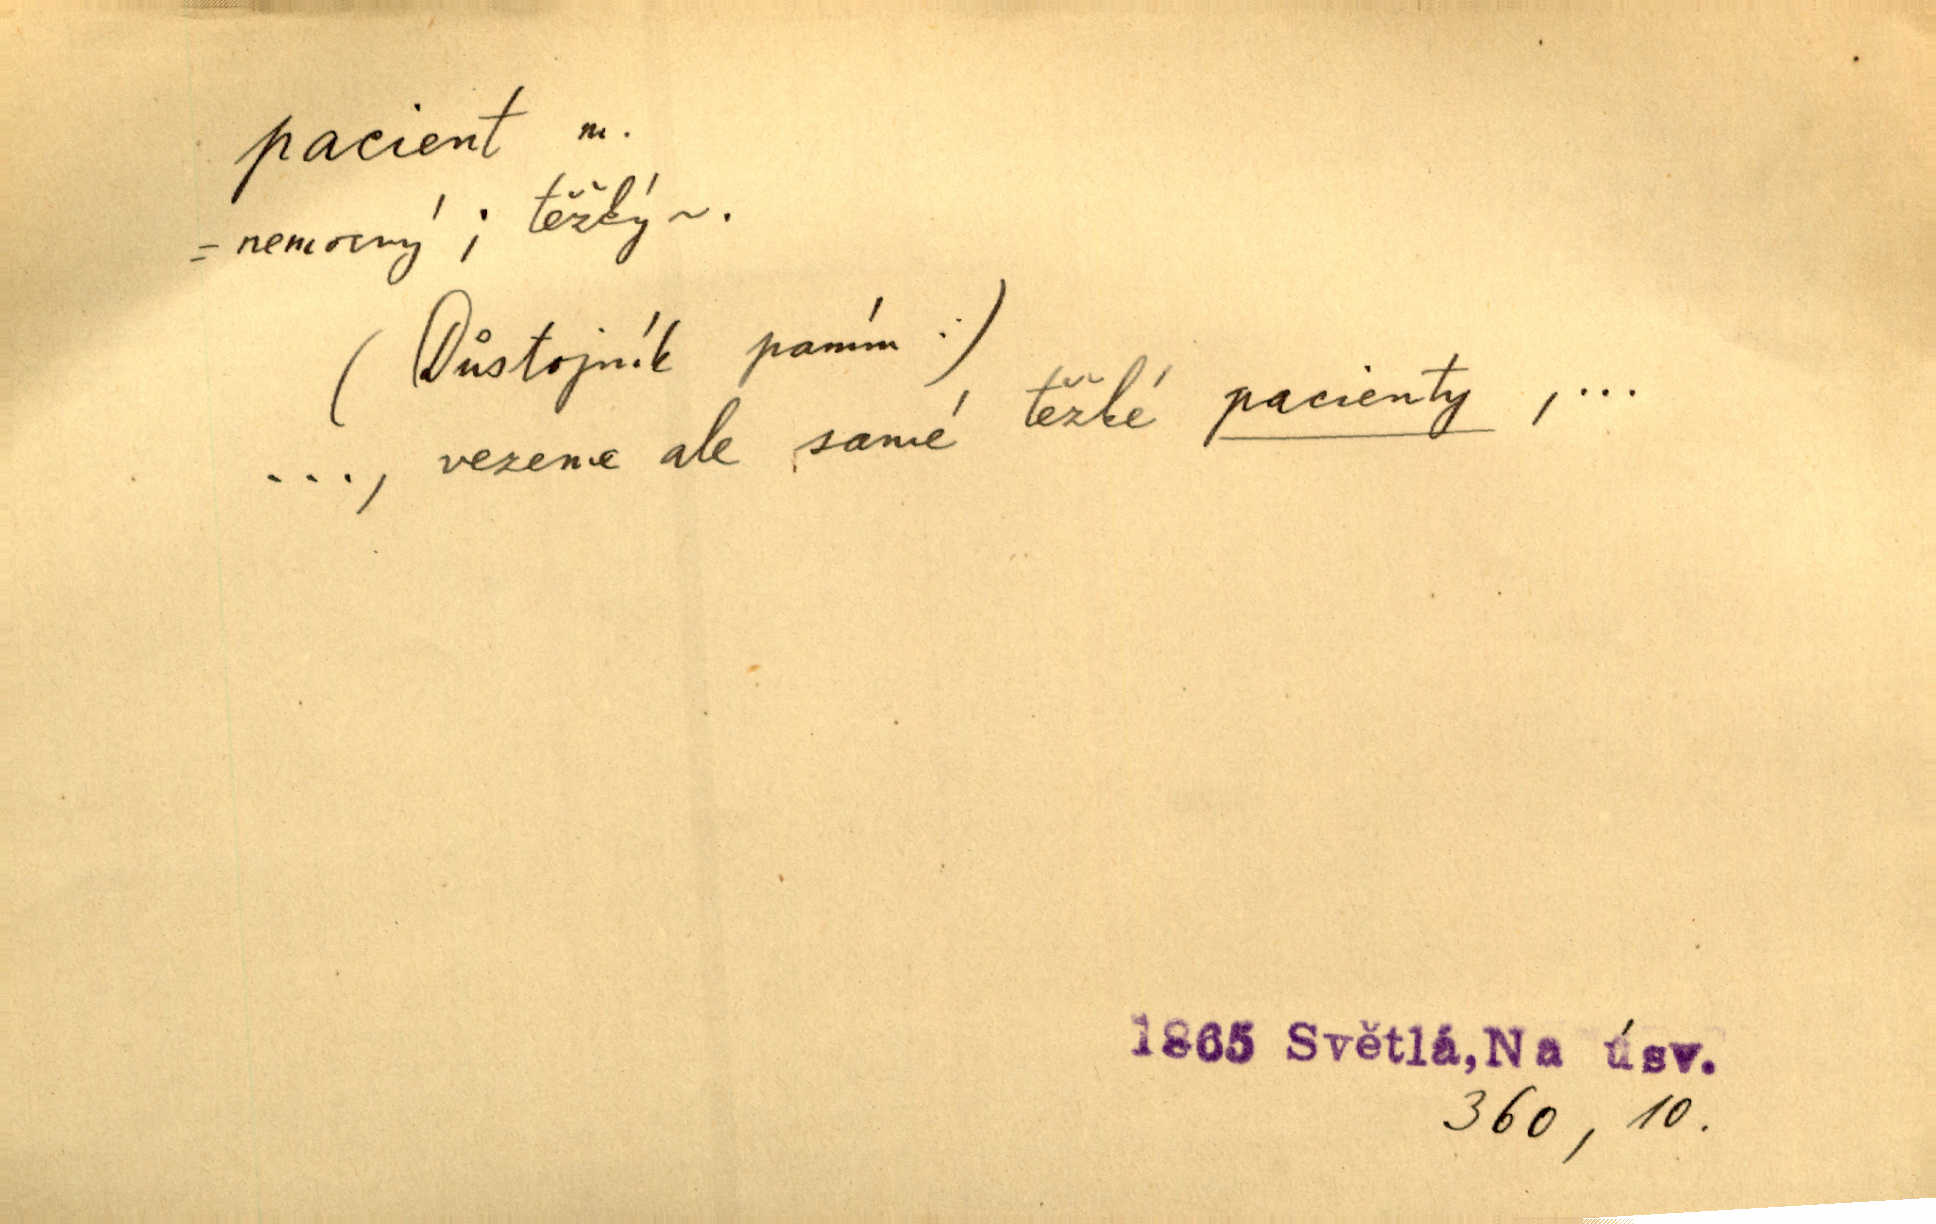 pacient m.
= nemocný ; těžký ~.
( Důstojník paním :)
..., vezeme ale samé těžké pacienty , ...
1865 Světlá, Na úsv.
360, 10.